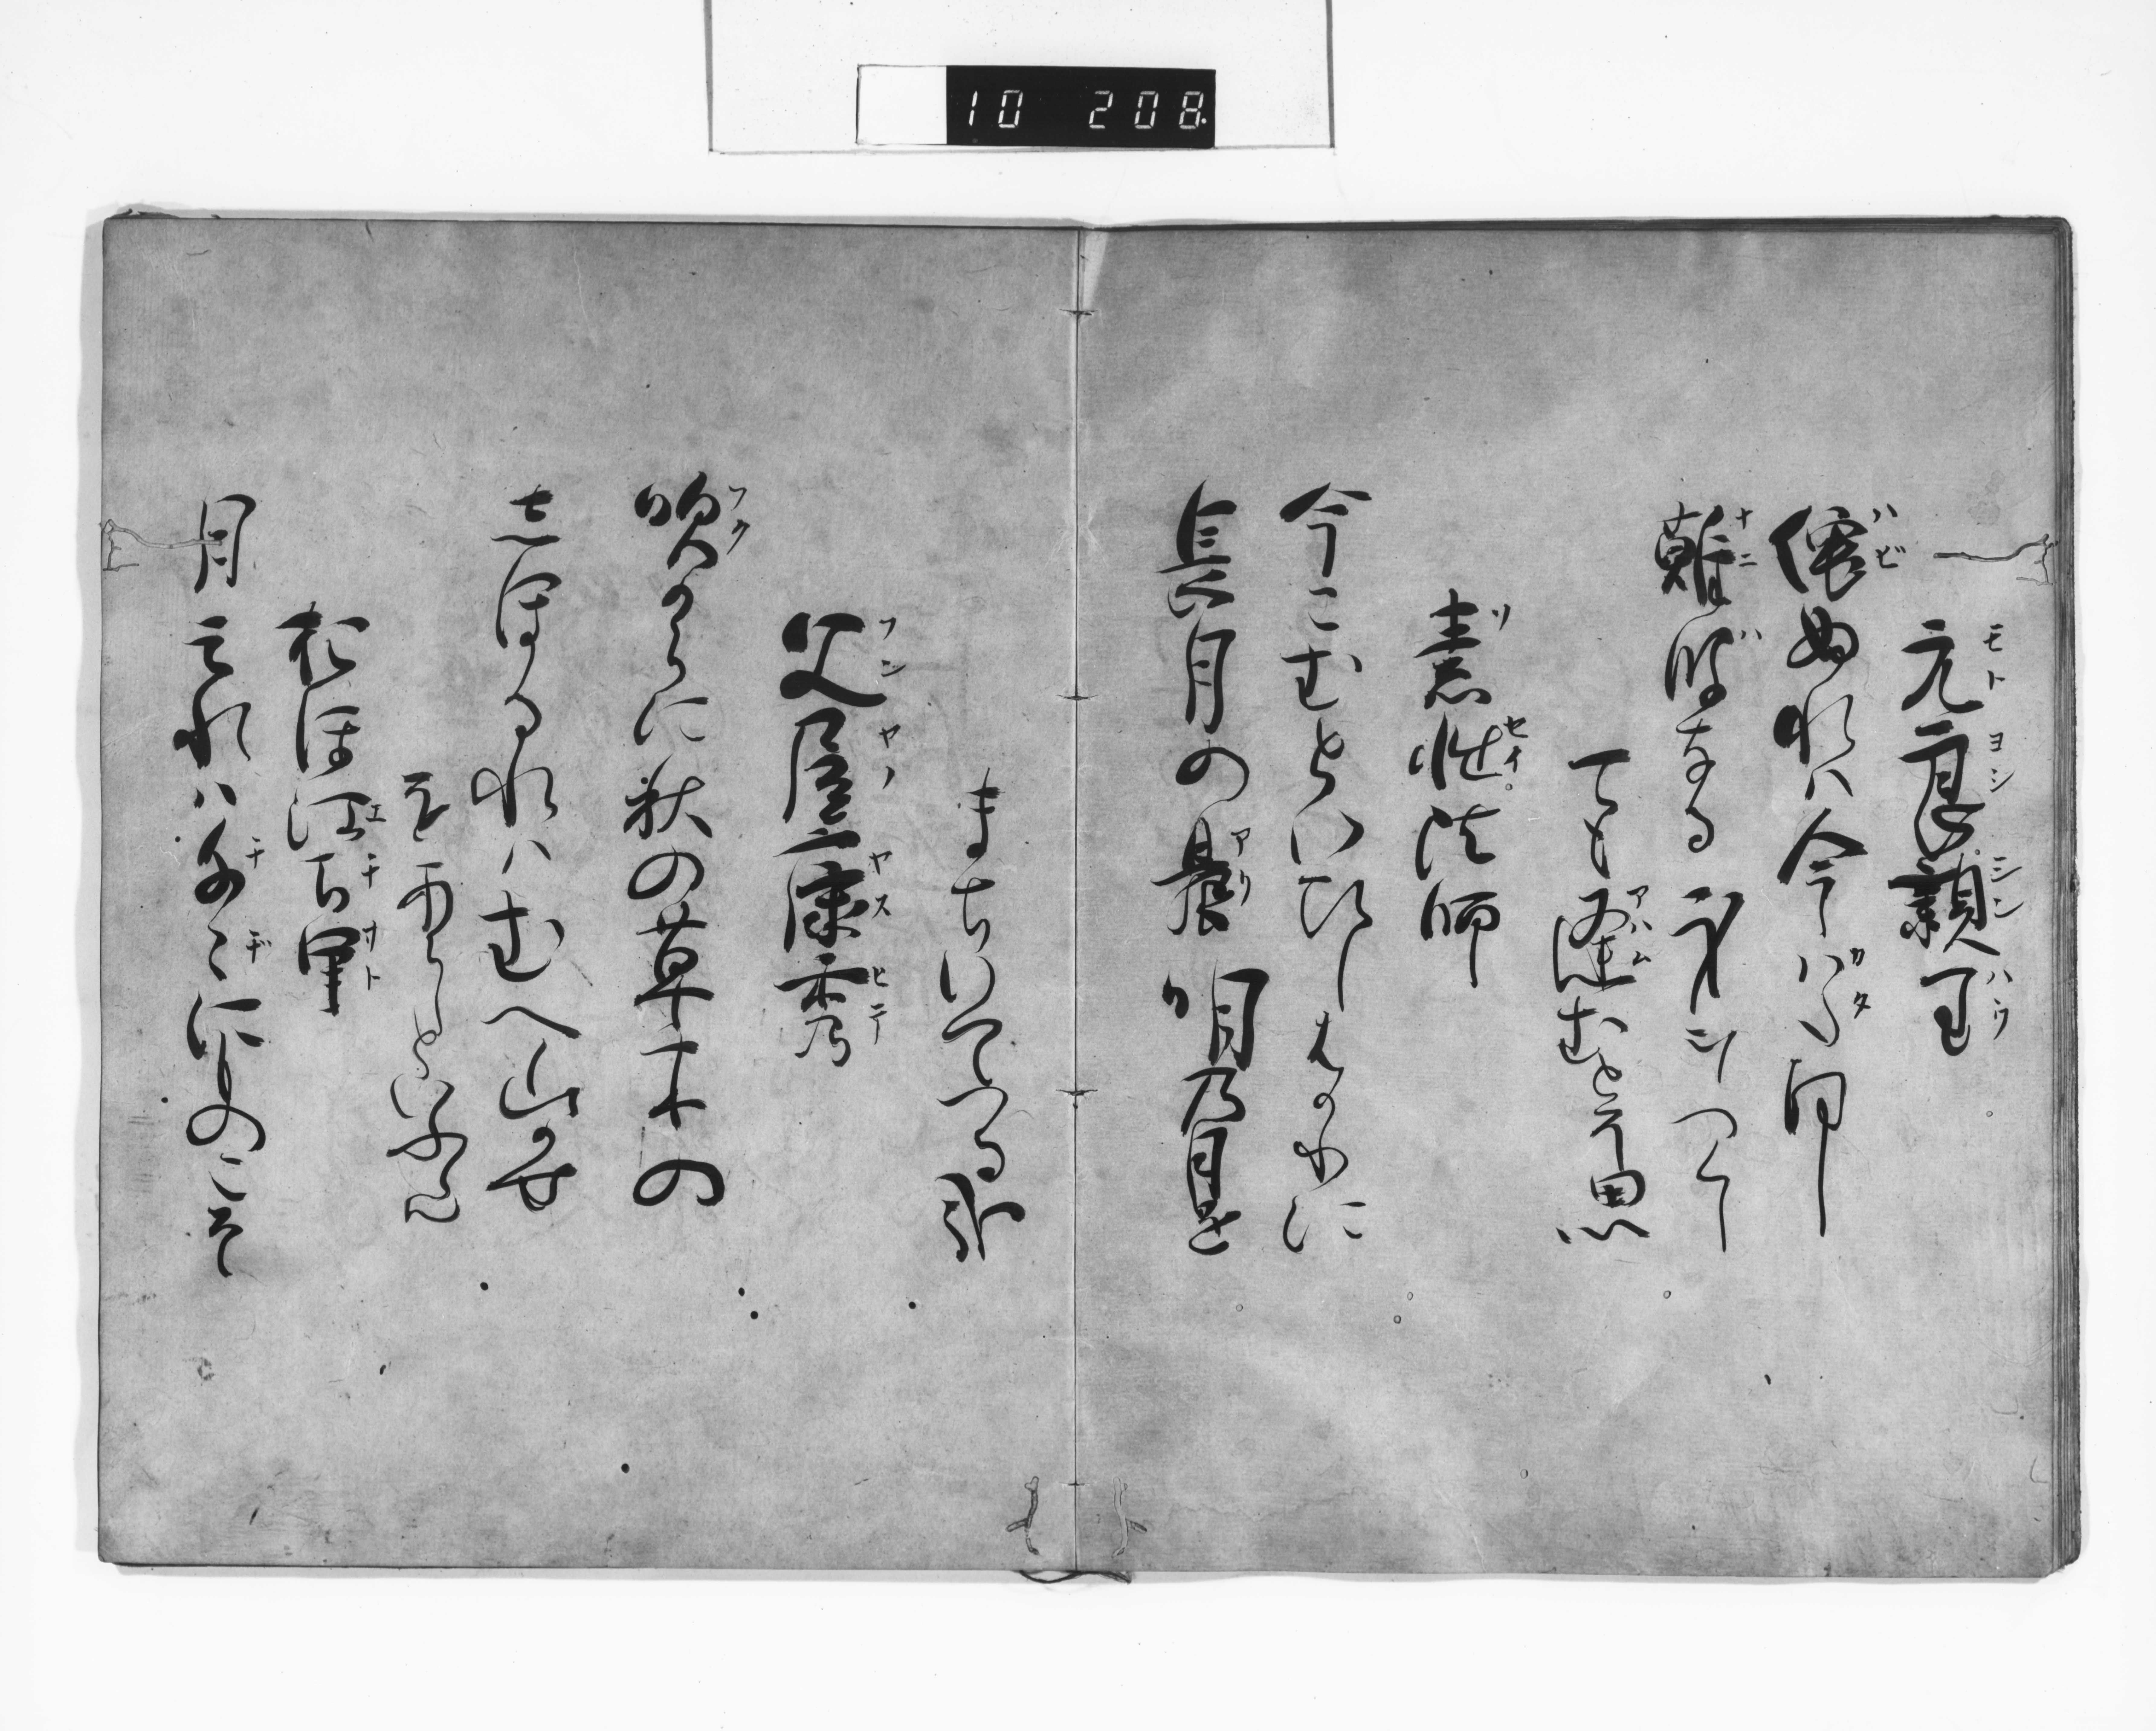 10 208.
元良親王
侘ぬれハ今ハた同し
難波なる身をつくし
ても逢むとそ思
素性法師
今こむといひしはかりに
長月の晨明乃月を
まちいてつる哉
文屋康秀
吹からに秋の草木の
志ほるれハむへ山かせ
を
あらしといふらん
大江千里
月みれハ千々に
ものこそ